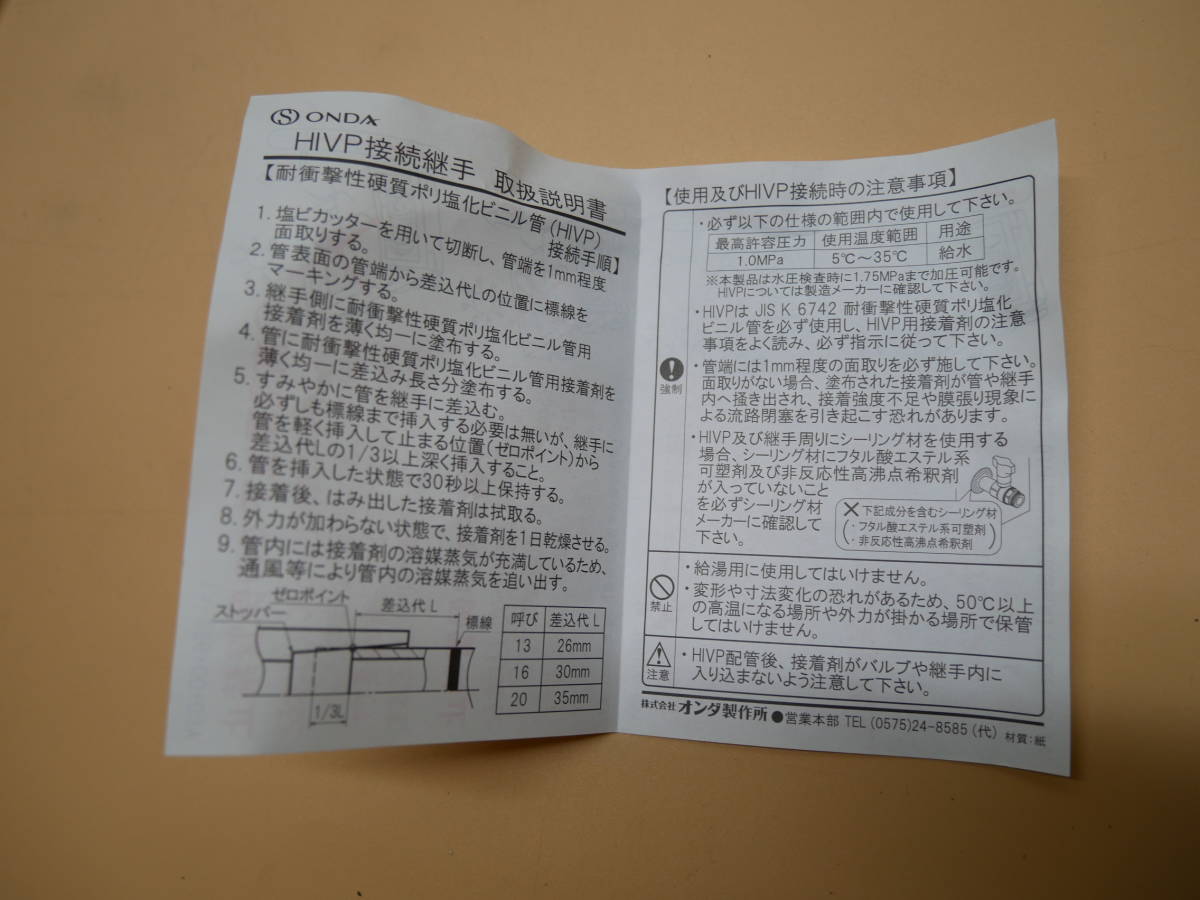 ONDA
HIVP接続継手 取扱説明書
【耐衝撃性硬質ポリ塩化ビニル管(HIVP)
接続手順】
1. 塩ビカッターを用いて切断し、管端を1mm程度
面取りする。
2. 管表面の管端から差込代Lの位置に標線を
マーキングする。
3. 継手側に耐衝撃性硬質ポリ塩化ビニル管用
接着剤を薄く均一に塗布する。
4. 管に耐衝撃性硬質ポリ塩化ビニル管用接着剤を
薄く均一に差込み長さ分塗布する。
5. すみやかに管を継手に差込む。
必ずしも標線まで挿入する必要は無いが、継手に
管を軽く挿入して止まる位置(ゼロポイント)から
差込代Lの1/3以上深く挿入すること。
6. 管を挿入した状態で30秒以上保持する。
7. 接着後、はみ出した接着剤は拭取る。
8. 外力が加わらない状態で、接着剤を1日乾燥させる。
9. 管内には接着剤の溶媒蒸気が充満しているため、
通風等により管内の溶媒蒸気を追い出す。
ゼロポイント
ストッパー
差込代 L
標線
1/3L
呼び 差込代 L
13 26mm
16 30mm
20 35mm
【使用及びHIVP接続時の注意事項】
・必ず以下の仕様の範囲内で使用して下さい。
最高許容圧力 使用温度範囲 用途
1.0MPa 5℃～35℃ 給水
※本製品は水圧検査時に1.75MPaまで加圧可能です。
HIVPについては製造メーカーに確認して下さい。
・HIVPは JIS K 6742 耐衝撃性硬質ポリ塩化
ビニル管を必ず使用し、HIVP用接着剤の注意
事項をよく読み、必ず指示に従って下さい。
強制
・管端には1mm程度の面取りを必ず施して下さい。
面取りがない場合、塗布された接着剤が管や継手
内へ掻き出され、接着強度不足や膜張り現象に
よる流路閉塞を引き起こす恐れがあります。
・HIVP及び継手周りにシーリング材を使用する
場合、シーリング材にフタル酸エステル系
可塑剤及び非反応性高沸点希釈剤
が入っていないこと
を必ずシーリング材
メーカーに確認して
下さい。
×下記成分を含むシーリング材
・フタル酸エステル系可塑剤
・非反応性高沸点希釈剤
禁止
・給湯用に使用してはいけません。
・変形や寸法変化の恐れがあるため、50℃以上
の高温になる場所や外力が掛かる場所で保管
してはいけません。
注意
・HIVP配管後、接着剤がバルブや継手内に
入り込まないよう注意して下さい。
株式会社 オンダ製作所 ●営業本部 TEL (0575)24-8585 (代) 材質:紙